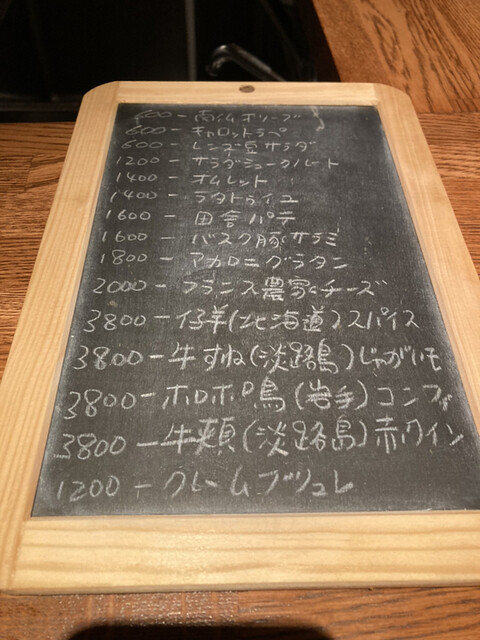 600-南仏オリーブ
600-キャロットラペ
600-レンズ豆サラダ
1200-サラダシュークルート
1400-オムレット
1400-ラタトゥイユ
1600-田舎パテ
1600-バスク豚サラミ
1800-マカロニグラタン
2000-フランス農家チーズ
3800-仔羊(北海道)スパイス
3800-牛すね(淡路島)じゃがいも
3800-ホロホロ鳥(岩手)コンフィ
3800-牛頬(淡路島)赤ワイン
1200-クレームブリュレ